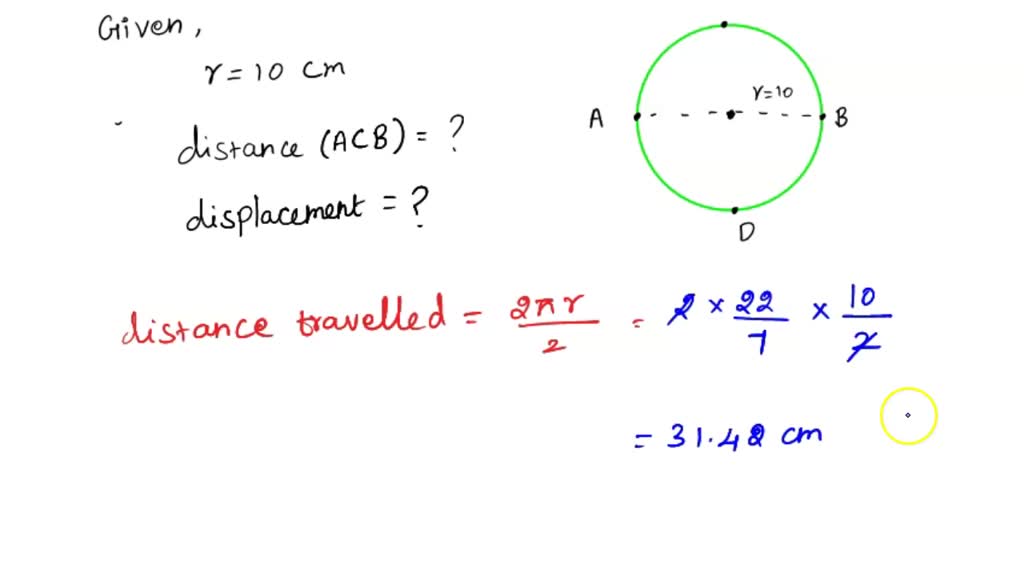 Given,
r = 10 cm
distance (ACB) = ?
displacement = ?
r=10
A
B
D
distance travelled = 2πr/2 = 2 × 22/7 × 10/2
= 31.42 cm